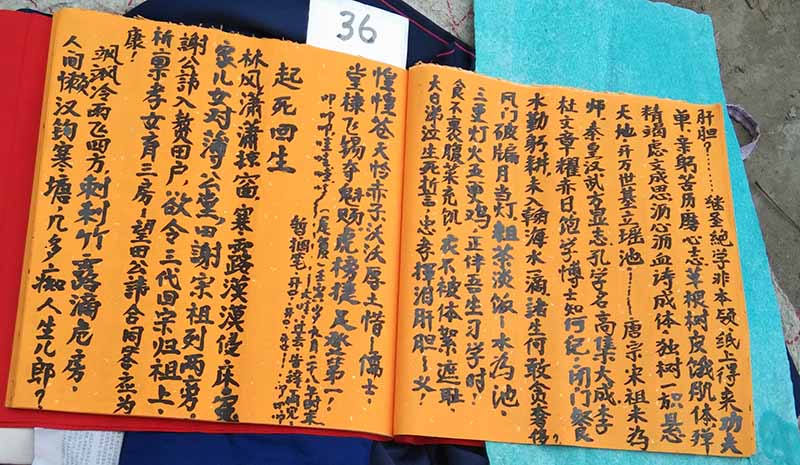 36
肝胆?……继圣绝学非本领纸上得来功夫
单。辛躬苦历磨心志草根树皮饿肌体殚
精竭虑支成思沥心洒血诗成体。独树一帜悬
天地。开万世基立瑶池……唐宗宋祖未为
师。秦皇汉武方显志。孔学名高集大成。李
杜文章耀赤日。饱学博士知何纪。闭门餐食
水勤躬耕。未入翰海水一滴。诸生何敢贪奢侈?
风门破牖月当灯。粗茶淡饭一木为池。
三更灯火五更鸡。正伴吾生习学时!
食不裹腹菜充饥。衣不被体絮遮耻。
大白涕泣生死誓言。忠孝挥泪肝胆一义!
惶惶苍天怜赤子。沃沃厚土惜一儒士。
堂栋飞锡夺魁赐。虎榜提足登第一!
叩叩叩哇哇哇
起死回生
林风潇潇掠窗。寒露漠漠侵床。冤
家儿女对薄公堂。田谢宋祖列两旁。
谢公讳入赘田户。欲令三代回宗归祖上。
祈禀孝女育三房。望田公讳合同
康!
飒飒冷雨飞四方。刺刺竹露滴危房。
人间懒汉钩寒塘。几多痴人生儿郎?